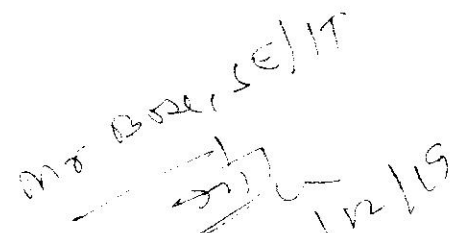 Mr Bose, SE/IT
/12/19